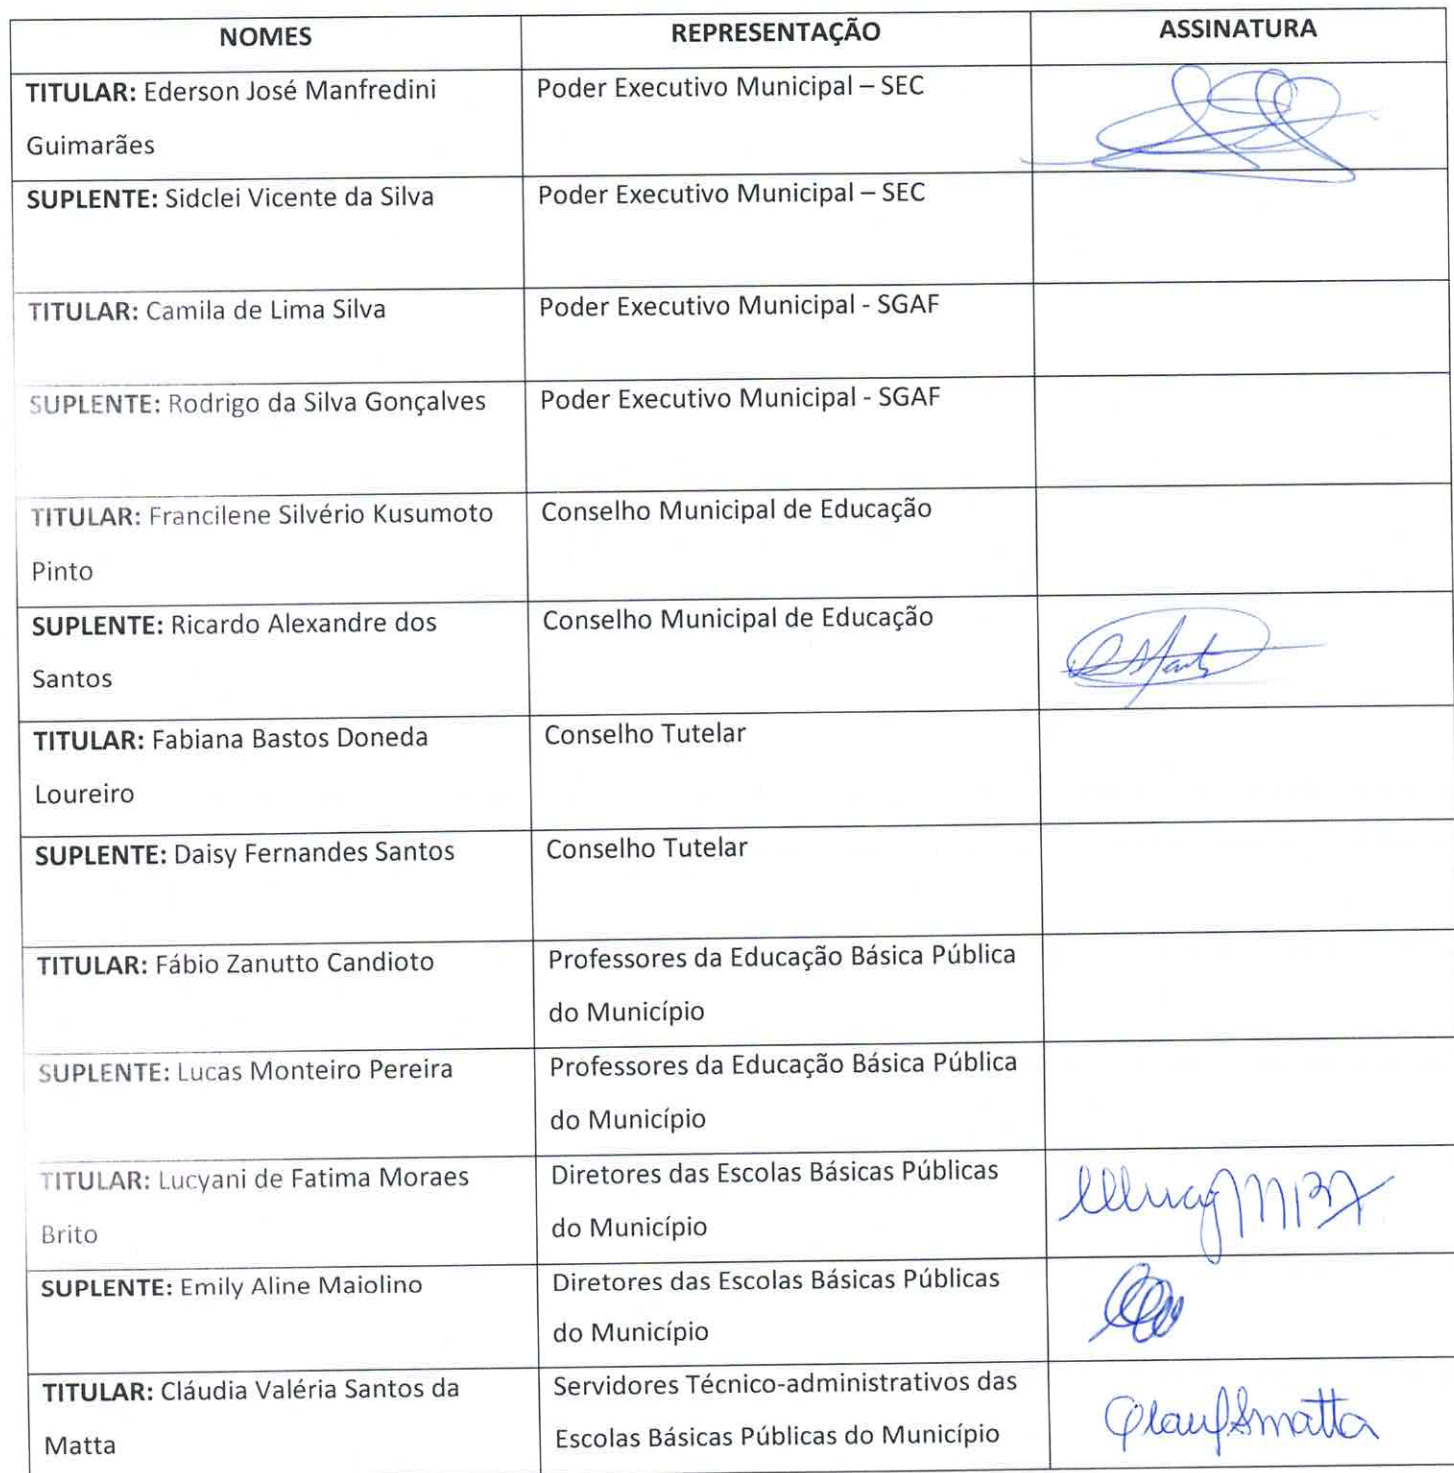 NOMES REPRESENTAÇÃO ASSINATURA
TITULAR: Ederson José Manfredini Poder Executivo Municipal – SEC
Guimarães
SUPLENTE: Sidclei Vicente da Silva Poder Executivo Municipal – SEC
TITULAR: Camila de Lima Silva Poder Executivo Municipal - SGAF
SUPLENTE: Rodrigo da Silva Gonçalves Poder Executivo Municipal - SGAF
TITULAR: Francilene Silvério Kusumoto Conselho Municipal de Educação
Pinto
SUPLENTE: Ricardo Alexandre dos Conselho Municipal de Educação
Santos
TITULAR: Fabiana Bastos Doneda Conselho Tutelar
Loureiro
SUPLENTE: Daisy Fernandes Santos Conselho Tutelar
TITULAR: Fábio Zanutto Candioto Professores da Educação Básica Pública
do Município
SUPLENTE: Lucas Monteiro Pereira Professores da Educação Básica Pública
do Município
TITULAR: Lucyani de Fatima Moraes Diretores das Escolas Básicas Públicas
Brito do Município
SUPLENTE: Emily Aline Maiolino Diretores das Escolas Básicas Públicas
do Município
TITULAR: Cláudia Valéria Santos da Servidores Técnico-administrativos das
Matta Escolas Básicas Públicas do Município